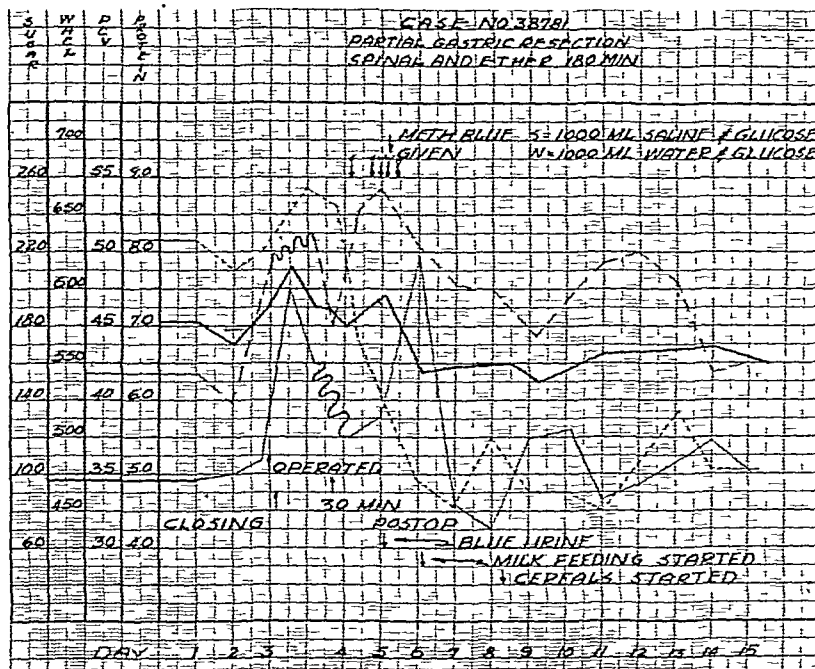 SUGAR WHCL PCV PROTEIN
CASE NO 38781
PARTIAL GASTRIC RESECTION
SPINAL AND ETHER 180 MIN
700
METH BLUE S=1000 ML SALINE & GLUCOSE
GIVEN W=1000 ML WATER & GLUCOSE
260 55 9.0
650
220 50 8.0
600
180 45 7.0
550
140 40 6.0
500
100 35 5.0
OPERATED
450
30 MIN
CLOSING POSTOP
60 30 4.0
BLUE URINE
MILK FEEDING STARTED
CEREALS STARTED
DAY 1 2 3 4 5 6 7 8 9 10 11 12 13 14 15